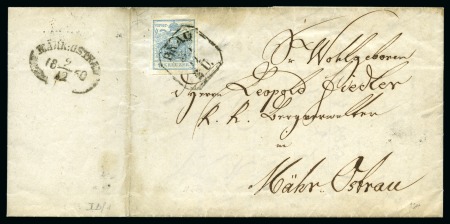 MÄHR: OSTRAU
18 2/12 50
PRAG
Sr Wohlgeboren
d Herrn Leopold Fiedler
k. k. Bergverwalter
in
Mähr. Ostrau